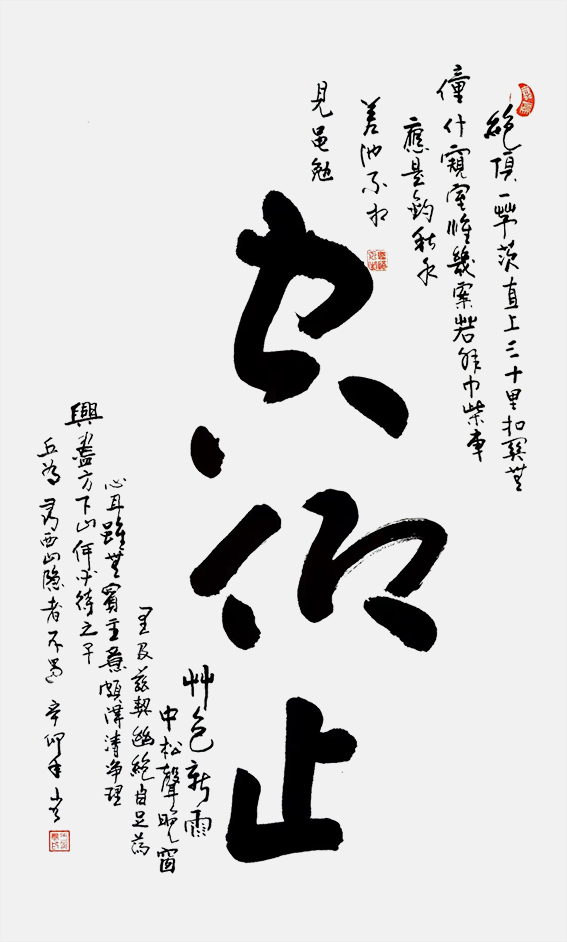 絕頂一茅茨直上三十里扣關無
僮什窺室惟幾案若非巾柴車
應是釣秋水
差池不相
見黽勉
空仰止
艸色新雨
中松聲晚窗
里及茲契幽絕自足蕩
心耳雖無賓主意頗得清淨理
興盡方下山何必待之子
丘為尋西山隱者不遇 辛卯年